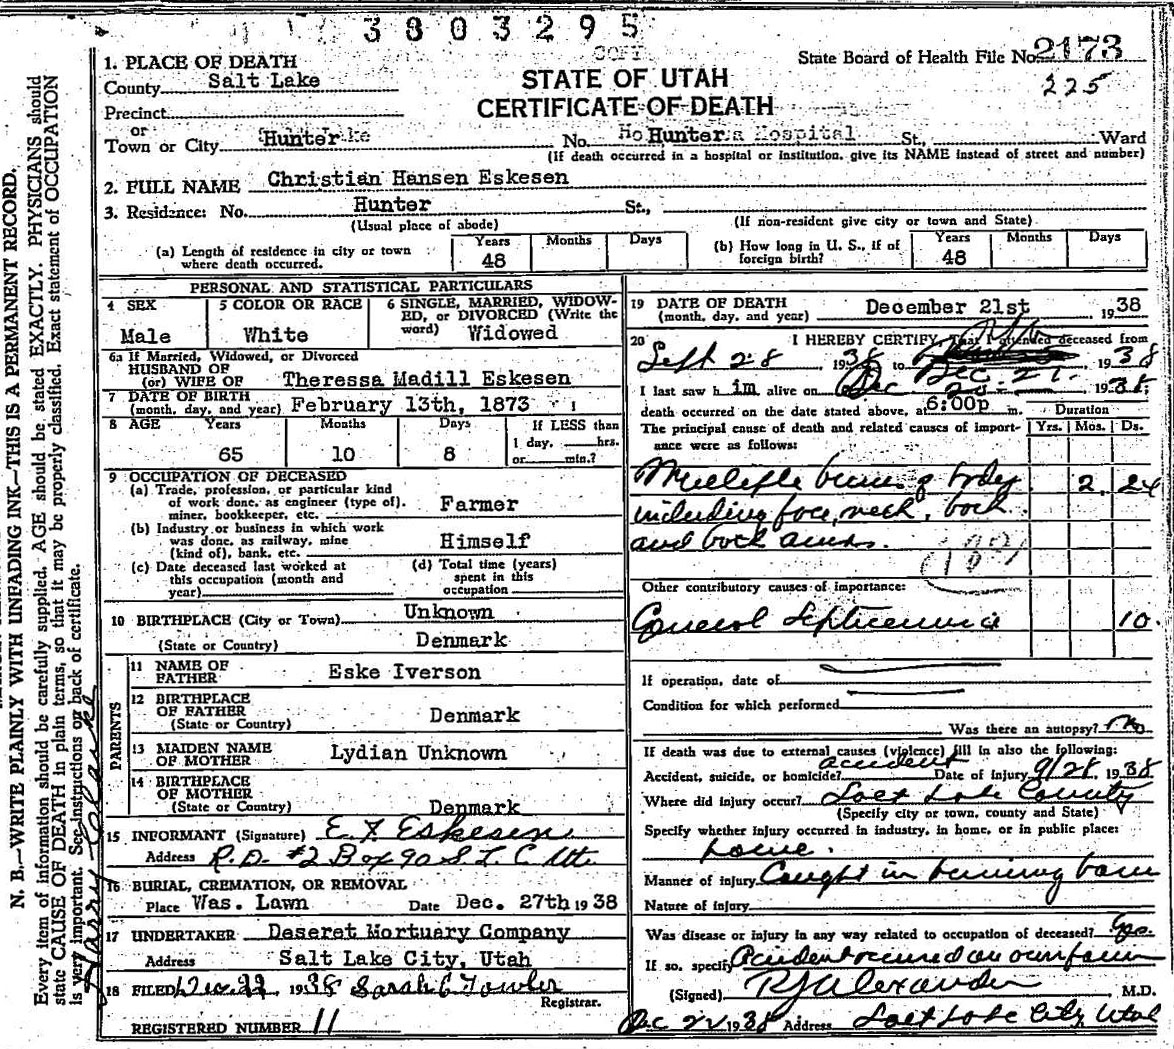 3803295
COPY
State Board of Health File No. 2173
225
1. PLACE OF DEATH
County Salt Lake
STATE OF UTAH
CERTIFICATE OF DEATH
Precinct
or
Town or City Hunter
No. Hunter Hospital St., Ward
(If death occurred in a hospital or institution, give its NAME instead of street and number)
2. FULL NAME Christian Hansen Eskesen
3. Residence: No. Hunter St.,
(Usual place of abode) (If non-resident give city or town and State)
(a) Length of residence in city or town where death occurred. Years 48 Months Days
(b) How long in U. S., if of foreign birth? Years 48 Months Days
PERSONAL AND STATISTICAL PARTICULARS
4 SEX Male
5 COLOR OR RACE White
6 SINGLE, MARRIED, WIDOWED, or DIVORCED (Write the word) Widowed
6a If Married, Widowed, or Divorced
HUSBAND OF
(or) WIFE OF Theressa Madill Eskesen
7 DATE OF BIRTH
(month, day, and year) February 13th, 1873
8 AGE Years 65 Months 10 Days 8 If LESS than 1 day, hrs. or min.?
9 OCCUPATION OF DECEASED
(a) Trade, profession, or particular kind of work done, as engineer (type of), miner, bookkeeper, etc. Farmer
(b) Industry or business in which work was done, as railway, mine (kind of), bank, etc. Himself
(c) Date deceased last worked at this occupation (month and year)
(d) Total time (years) spent in this occupation
10 BIRTHPLACE (City or Town) Unknown
(State or Country) Denmark
PARENTS
11 NAME OF FATHER Eske Iverson
12 BIRTHPLACE OF FATHER
(State or Country) Denmark
13 MAIDEN NAME OF MOTHER Lydian Unknown
14 BIRTHPLACE OF MOTHER
(State or Country) Denmark
15 INFORMANT (Signature) E F Eskesen
Address R.D. #2 Box 90 S L C Ut.
16 BURIAL, CREMATION, OR REMOVAL
Place Was. Lawn Date Dec. 27th 1938
17 UNDERTAKER Deseret Mortuary Company
Address Salt Lake City, Utah
18 FILED Dec. 22, 1938 Sarah C Fowler
Registrar.
REGISTERED NUMBER 11
19 DATE OF DEATH
(month, day, and year) December 21st 1938
20 I HEREBY CERTIFY, That I attended deceased from
Sept 28 1938 to Dec. 21. 1938
I last saw h im alive on Dec 1938
death occurred on the date stated above, at 6:00p m. Duration
The principal cause of death and related causes of importance were as follows: Yrs. Mos. Ds.
Multiple burns of body 2 24
including face, neck, back
and both arms.
Other contributory causes of importance:
General Septicemia 10
If operation, date of
Condition for which performed
Was there an autopsy? No
If death was due to external causes (violence) fill in also the following:
Accident, suicide, or homicide? accident Date of injury 9/28, 1938
Where did injury occur? Salt Lake County
(Specify city or town, county and State)
Specify whether injury occurred in industry, in home, or in public place:
home.
Manner of injury Caught in burning barn
Nature of injury
Was disease or injury in any way related to occupation of deceased? Yes.
If so, specify Accident occured on own farm
(Signed) R J Alexander, M.D.
Dec 22 1938 Address Salt Lake City, Utah
N. B.—WRITE PLAINLY WITH UNFADING INK—THIS IS A PERMANENT RECORD.
Every item of information should be carefully supplied. AGE should be stated EXACTLY. PHYSICIANS should
state CAUSE OF DEATH in plain terms, so that it may be properly classified. Exact statement of OCCUPATION
is very important. See instructions on back of certificate.